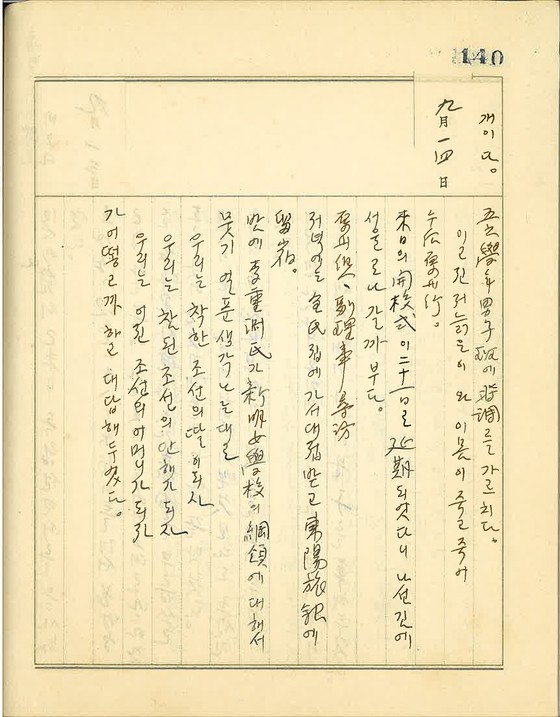 140
개이다。
五六學年男子班에 時調를 가르치다。
이고진 저 늙은이와 이몸이 죽고 죽어
九月一四日
來日의 開校式이 二十一日로 延期되엿다니 나선 길에
서울로나 갈까부다。
副理事 尋訪
저녁에는 金氏집에 가서 대접받고 東陽旅館에
留宿。
밤에 李重澍氏가 新明女學校의 綱領에 대해서
묻기 얼푼 생각나는대로
우리는 착한 조선의 딸이 되자
우리는 참된 조선의 안해가 되자
우리는 어진 조선의 어머니가 되자
가 어떻고까 하고 대답해 두엇다。